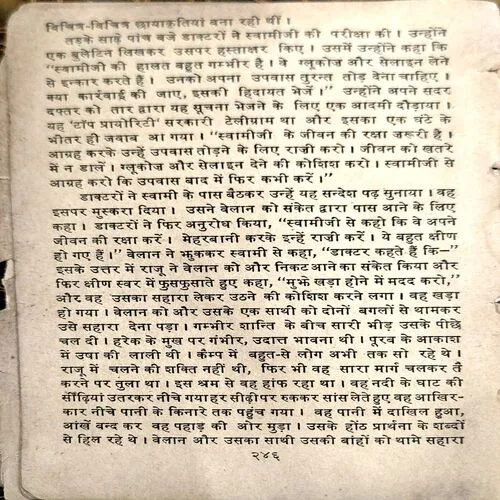 विचित्र-विचित्र छायाकृतियां बना रही थीं।
तड़के साढ़े पांच बजे डाक्टरों ने स्वामीजी की परीक्षा की। उन्होंने
एक बुलेटिन लिखकर उसपर हस्ताक्षर किए। उसमें उन्होंने कहा कि
“स्वामीजी की हालत बहुत गम्भीर है। वे ग्लूकोज और सेलाइन लेने
से इन्कार करते हैं। उनको अपना उपवास तुरन्त तोड़ देना चाहिए।
क्या कार्रवाई की जाए, इसकी हिदायत भेजें।” उन्होंने अपने सदर
दफ्तर को तार द्वारा यह सूचना भेजने के लिए एक आदमी दौड़ाया।
यह 'टॉप प्रायोरिटी' सरकारी टेलीग्राम था और इसका एक घंटे के
भीतर ही जवाब आ गया। “स्वामीजी के जीवन की रक्षा जरूरी है।
आग्रह करके उन्हें उपवास तोड़ने के लिए राजी करो। जीवन को खतरे
में न डालें। ग्लूकोज और सेलाइन देने की कोशिश करो। स्वामीजी से
आग्रह करो कि उपवास बाद में फिर कभी करें।”
डाक्टरों ने स्वामी के पास बैठकर उन्हें यह सन्देश पढ़ सुनाया। वह
इसपर मुस्करा दिया। उसने वेलान को संकेत द्वारा पास आने के लिए
कहा। डाक्टरों ने फिर अनुरोध किया, “स्वामीजी से कहो कि वे अपने
जीवन की रक्षा करें। मेहरबानी करके इन्हें राजी करें। ये बहुत क्षीण
हो गए हैं।” वेलान ने झुककर स्वामी से कहा, “डाक्टर कहते हैं कि—”
इसके उत्तर में राजू ने वेलान को और निकट आने का संकेत किया और
फिर क्षीण स्वर में फुसफुसाते हुए कहा, “मुझे खड़ा होने में मदद करो,”
और वह उसका सहारा लेकर उठने की कोशिश करने लगा। वह खड़ा
हो गया। वेलान को और उसके एक साथी को दोनों बगलों से थामकर
उसे सहारा देना पड़ा। गम्भीर शान्ति के बीच सारी भीड़ उसके पीछे
चल दी। हरेक के मुख पर गंभीर, उदात्त भावना थी। पूरब के आकाश
में उषा की लाली थी। कैम्प में बहुत-से लोग अभी तक सो रहे थे।
राजू में चलने की शक्ति नहीं थी, फिर भी वह सारा मार्ग चलकर तै
करने पर तुला था। इस श्रम से वह हांफ रहा था। वह नदी के घाट की
सीढ़ियां उतरकर नीचे गया हर सीढ़ी पर रुककर सांस लेते हुए वह आखिर-
कार नीचे पानी के किनारे तक पहुंच गया। वह पानी में दाखिल हुआ,
आंखें बन्द कर वह पहाड़ की ओर मुड़ा। उसके होंठ प्रार्थना के शब्दों
से हिल रहे थे। वेलान और उसका साथी उसकी बांहों को थामे सहारा
२४६